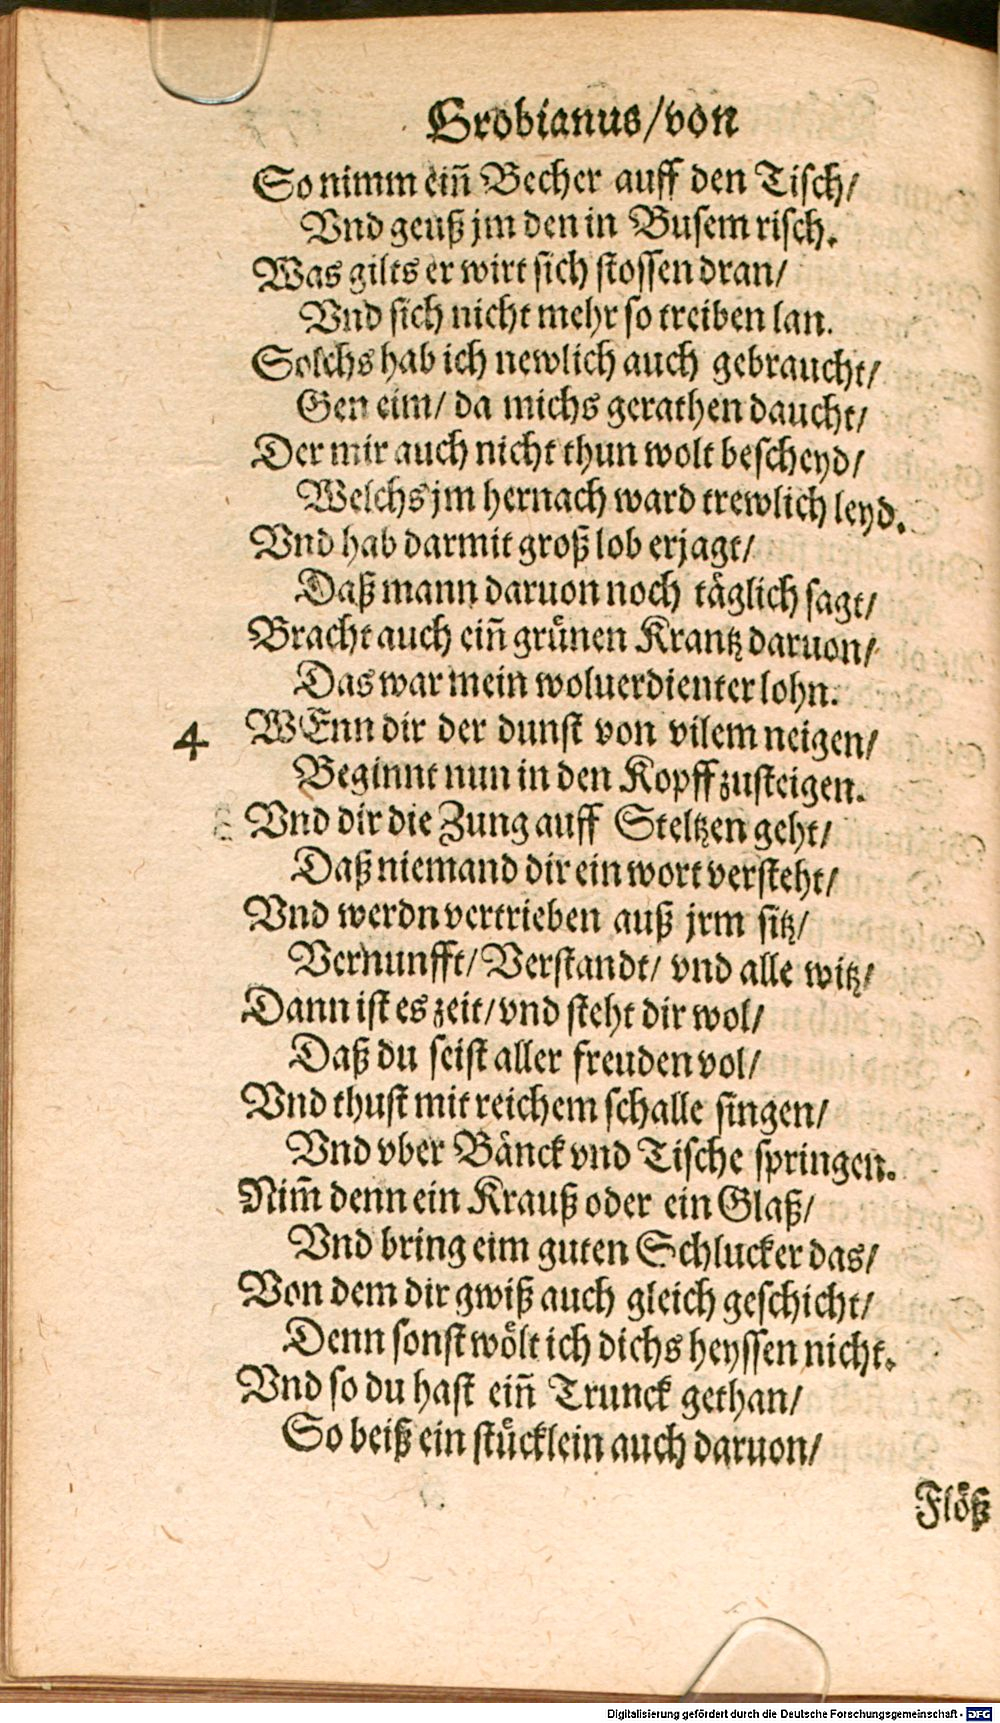 Grobianus/von
So nimm ein̄ Becher auff den Tisch/
Vnd geuß jm den in Busem risch.
Was gilts er wirt sich stossen dran/
Vnd sich nicht mehr so treiben lan.
Solchs hab ich newlich auch gebraucht/
Gen eim/ da michs gerathen daucht/
Der mir auch nicht thun wolt bescheyd/
Welchs jm hernach ward trewlich leyd.
Vnd hab darmit groß lob erjagt/
Daß mann daruon noch täglich sagt/
Bracht auch ein̄ grünen Krantz daruon/
Das war mein woluerdienter lohn.
4 WEnn dir der dunst von vilem neigen/
Beginnt nun in den Kopff zusteigen.
Vnd dir die Zung auff Steltzen geht/
Daß niemand dir ein wort versteht/
Vnd werdn vertrieben auß jrm sitz/
Vernunfft/ Verstandt/ vnd alle witz/
Dann ist es zeit/ vnd steht dir wol/
Daß du seist aller freuden vol/
Vnd thust mit reichem schalle singen/
Vnd vber Bänck vnd Tische springen.
Nim̄ denn ein Krauß oder ein Glaß/
Vnd bring eim guten Schlucker das/
Von dem dir gwiß auch gleich geschicht/
Denn sonst wölt ich dichs heyssen nicht.
Vnd so du hast ein̄ Trunck gethan/
So beiß ein stücklein auch daruon/
Flöß
Digitalisierung gefördert durch die Deutsche Forschungsgemeinschaft - DFG